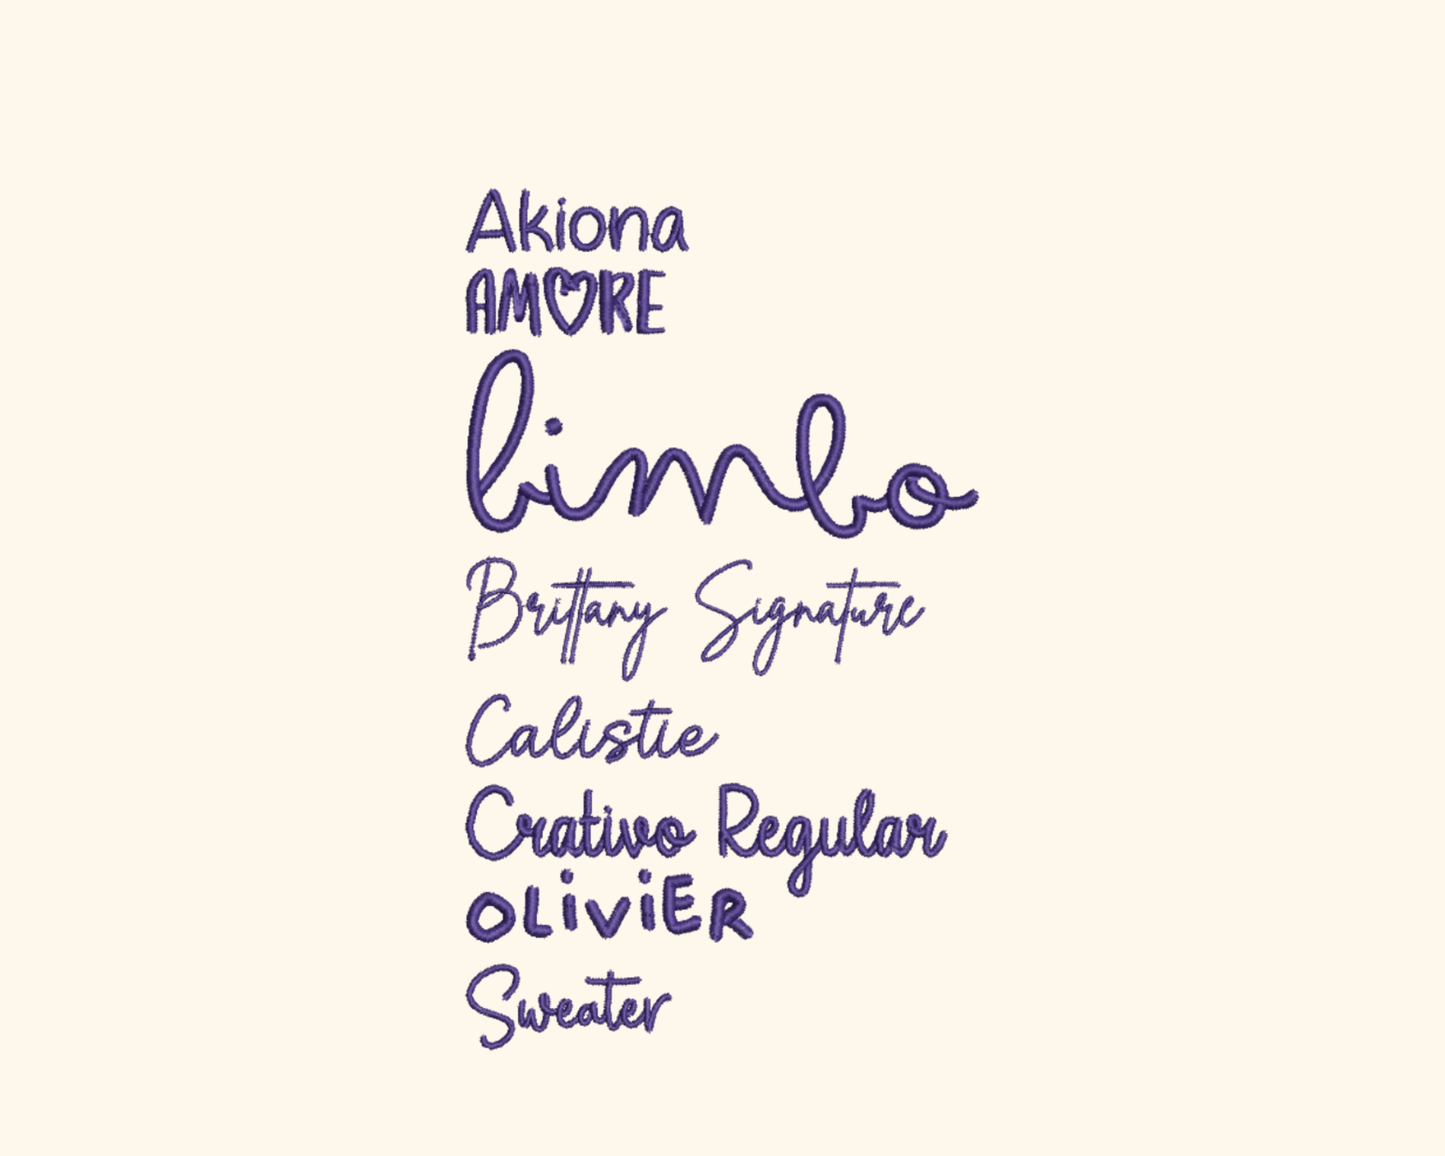 Akiona
AMORE
bimbo
Brittany Signature
Calistie
Crativo Regular
OLiViER
Sweater